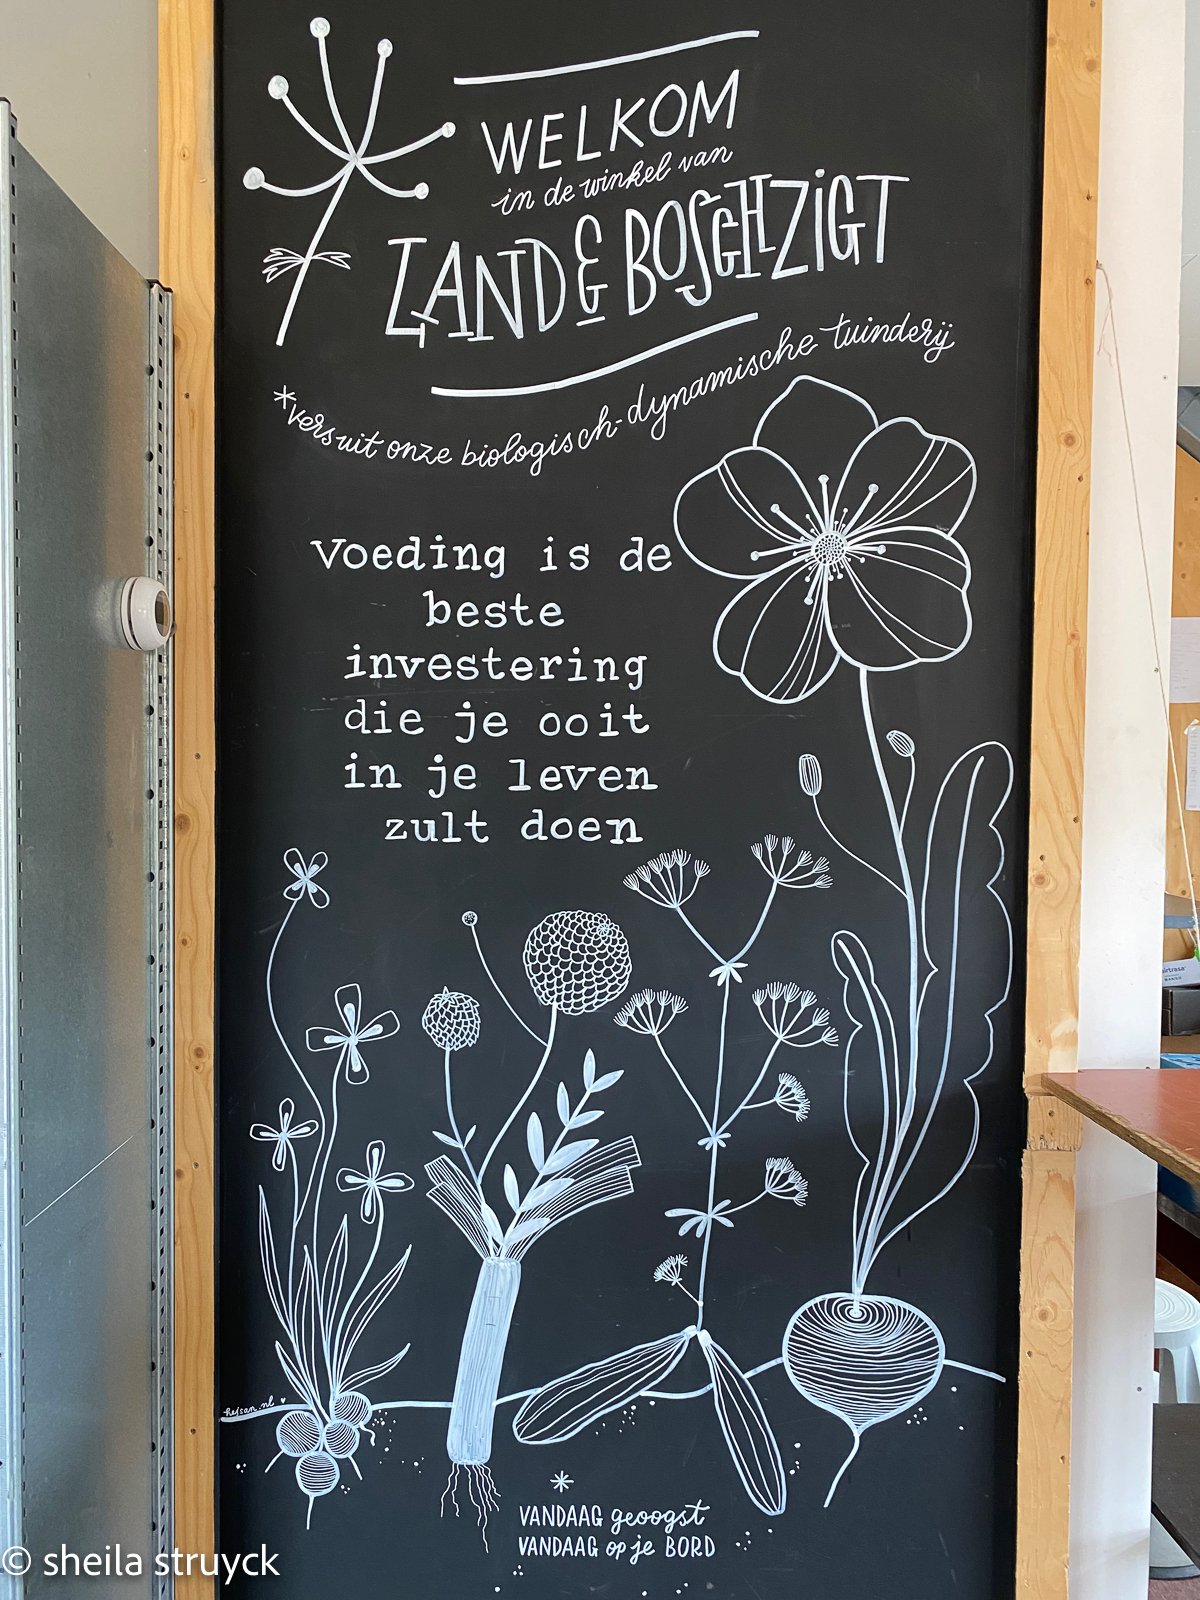 WELKOM
in de winkel van
LAND & BOSCHZIGT
*vers uit onze biologisch-dynamische tuinderij
Voeding is de
beste
investering
die je ooit
in je leven
zult doen
heisan.nl
*
VANDAAG geoogst
VANDAAG op je BORD
© sheila struyck